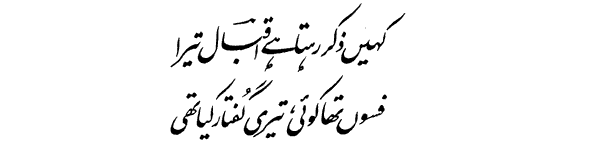 کہیں ذکر رہتا ہے اقبال تیرا
فسوں تھا کوئی، تیری گفتار کیا تھی